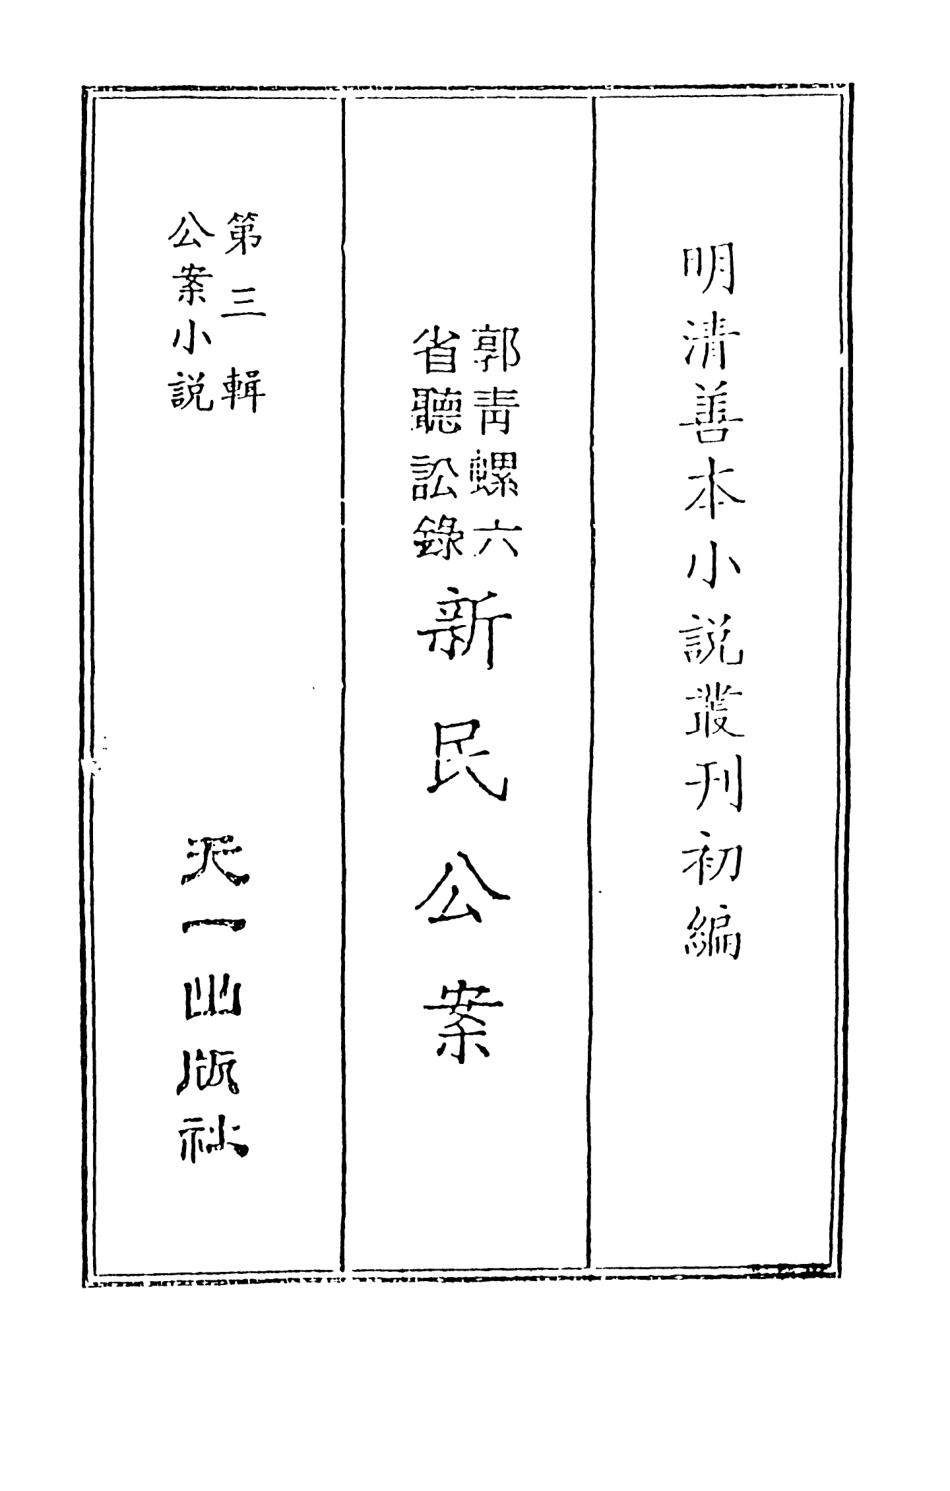 明清善本小説叢刊初編
郭青螺六
省聽訟錄
新民公案
第三輯
公案小説
天一出版社